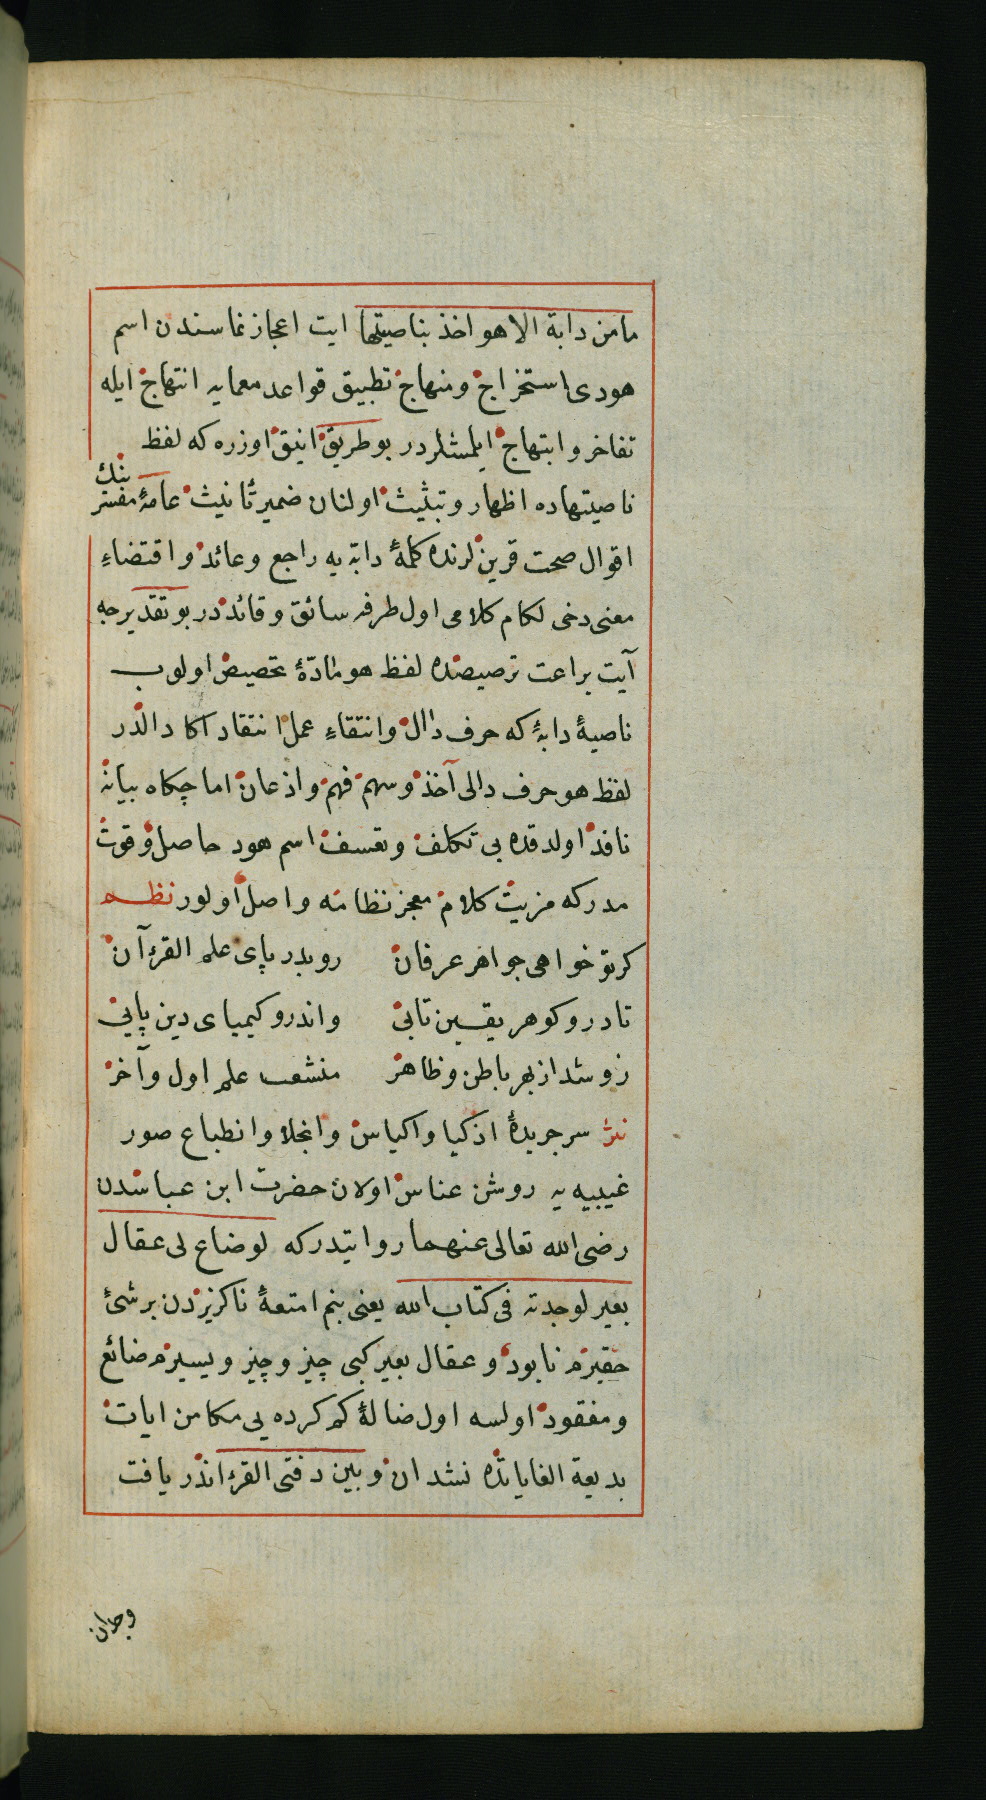 مامن دابة الاهو اخذ بناصيتها ايت اعجاز نماسندن اسم
هودى استخراج ومنهاج تطبيق قواعد معمايه انتهاج ايله
تفاخر وابتهاج ايلمشلردر بو طريق انيق اوزره كه لفظ
ناصيتهاده اظهار وتبثيث اولنان ضمير تأنيث عامهٔ مفسر
ينك
اقوال صحت قرينلرنده كلمهٔ دابه يه راجع وعائد واقتضاء
معنى دخى لكام كلامى اول طرفه سائق وقائددر بو تقديرجه
آيت براعت ترصيصنده لفظ هو مادّهٔ تخصيص اولوب
ناصيهٔ دابهٔ كه حرف دال وانتقاء عمل انتقاد اكا دالدر
لفظ هو حرف دالى آخذ وسهم فهم واذعان اما جكاه بيانه
نافذ اولدقده بى تكلف وتعسف اسم هود حاصل وقوت
مدركه مزيت كلام معجز نظامنه واصل اولور نظم
كر تو خواهى جواهر عرفان روبدرياى علم القرآن
تا درو كوهر يقين تابى واندرو كيمياى دين يابى
زو شد از بهر باطن وظاهر منشعب علم اول وآخر
نثر سر جريدهٔ اذكيا واكياس وانجلا وانطباع صور
غيبيه يه روشن عناس اولان حضرت ابن عباسدن
رضى الله تعالى عنهما روايتدركه لوضاع لى عقال
بعير لوجدته فى كتاب الله يعنى بنم امتعهٔ ناكزيزدن بر شئ
حقيرم نابود وعقال بعير كبى چيز وجيز ويسيرم ضائع
ومفقود اولسه اول ضالهٔ كم كرده يى مكامن ايات
بديعة الغاياتده نشدان وبين دفتى القرءاندر يافت
وجدان